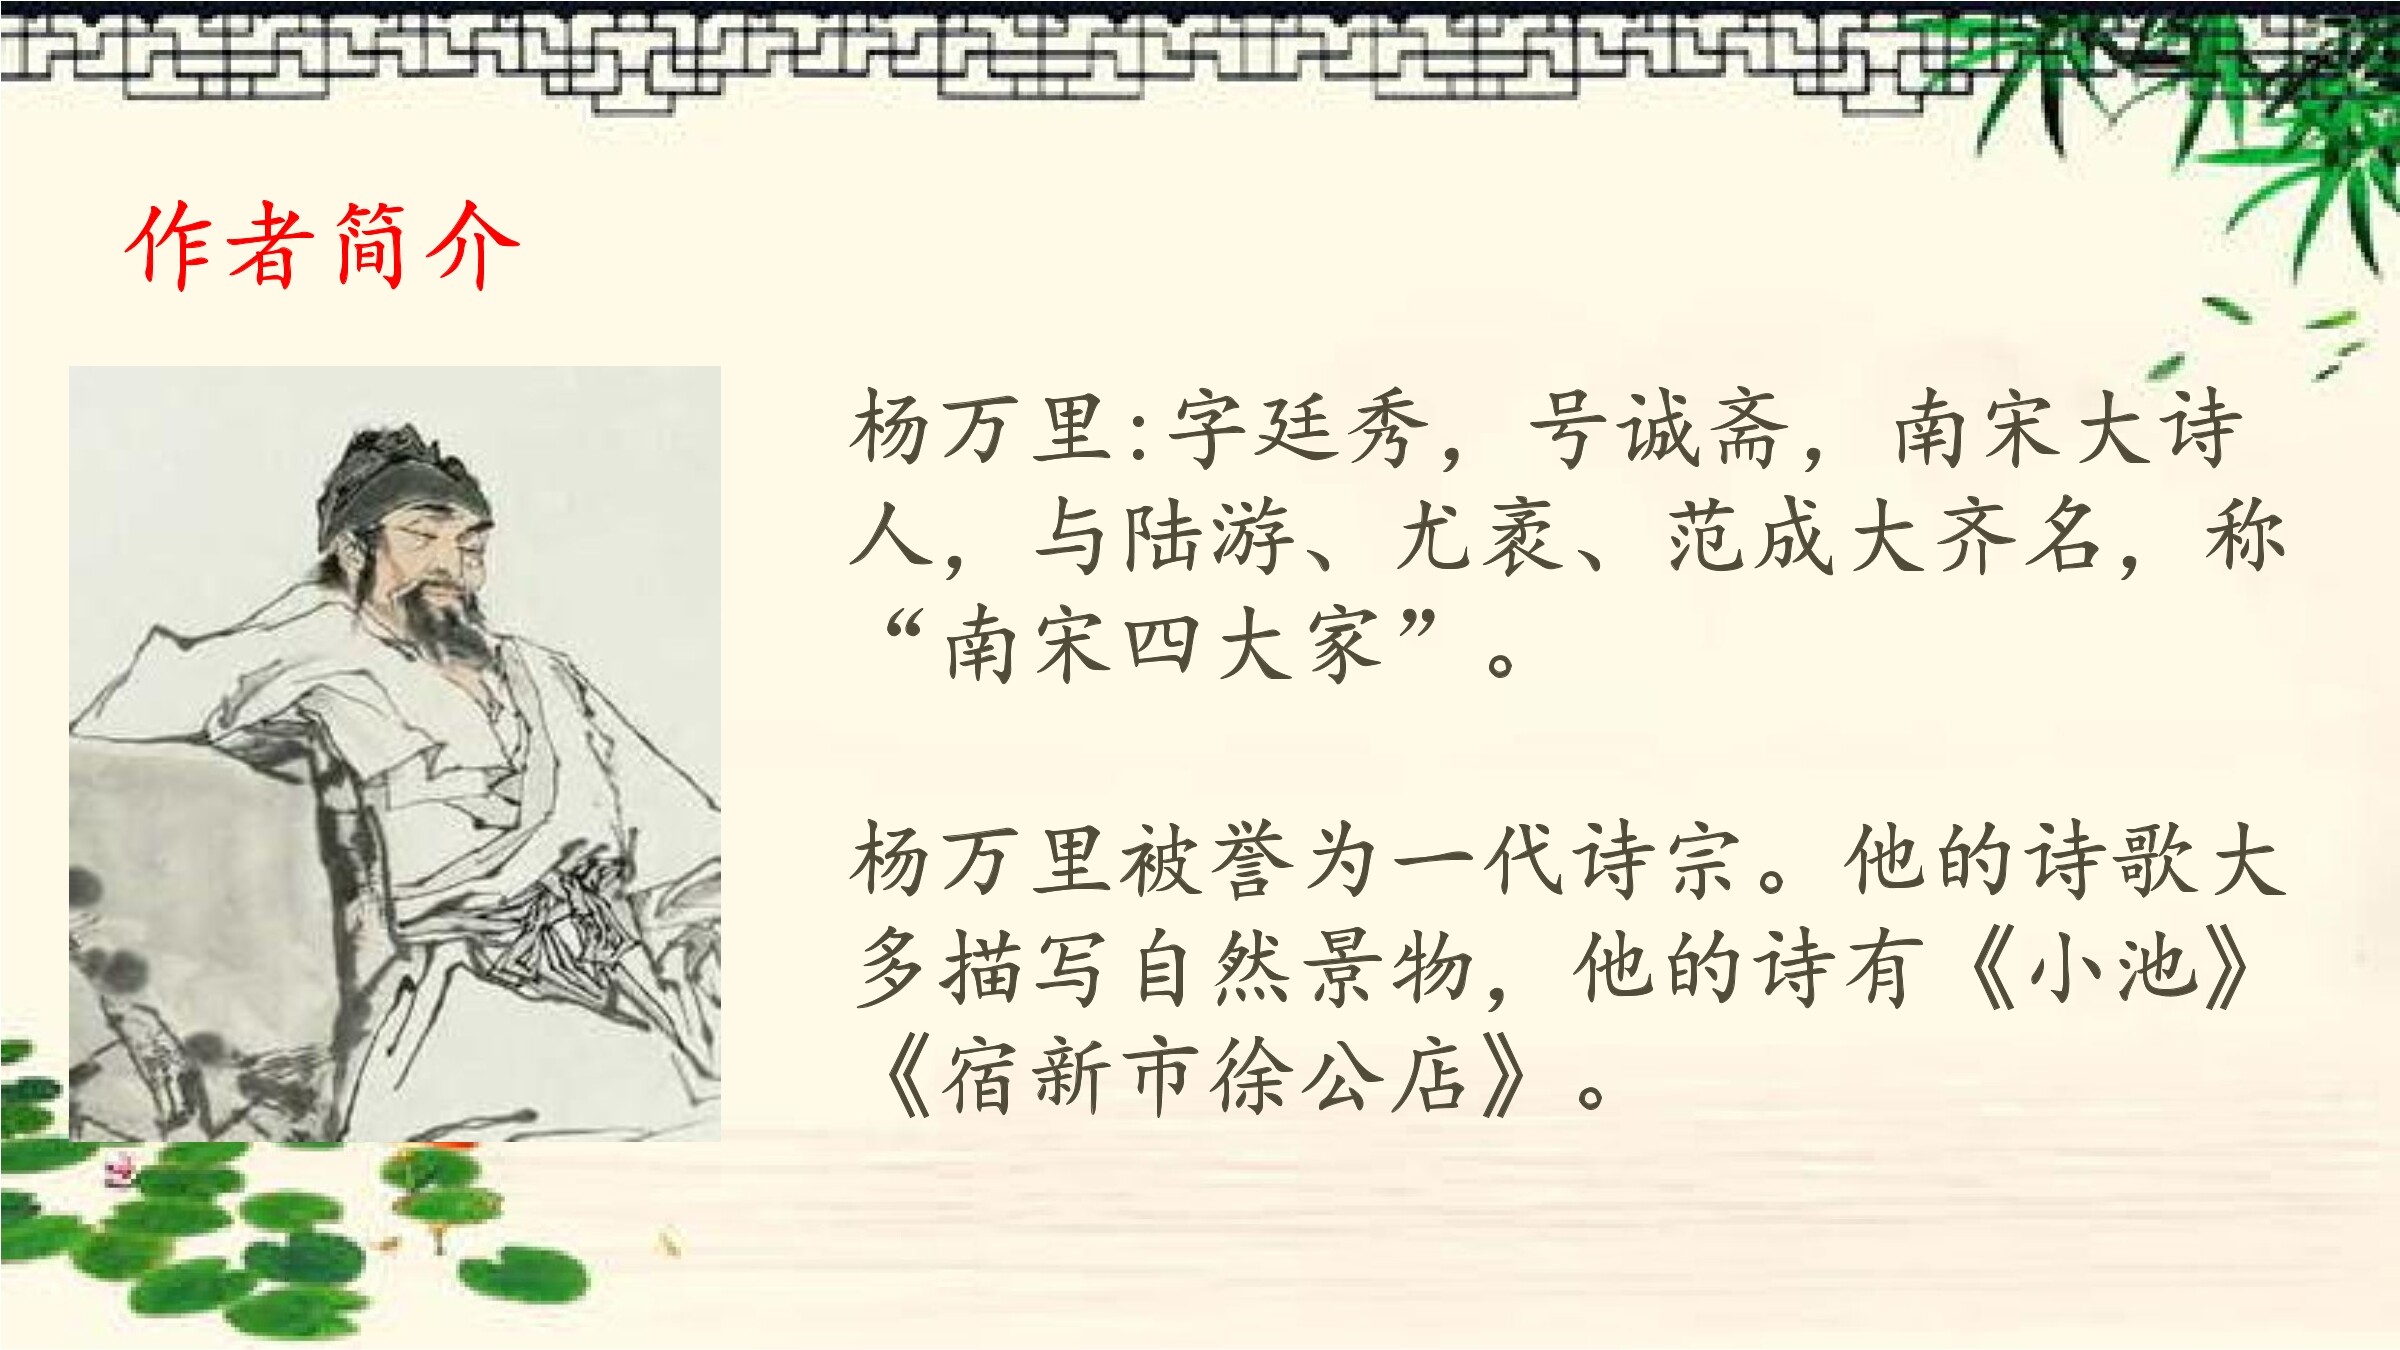 作者简介
杨万里:字廷秀，号诚斋，南宋大诗
人，与陆游、尤袤、范成大齐名，称
“南宋四大家”。
杨万里被誉为一代诗宗。他的诗歌大
多描写自然景物，他的诗有《小池》
《宿新市徐公店》。